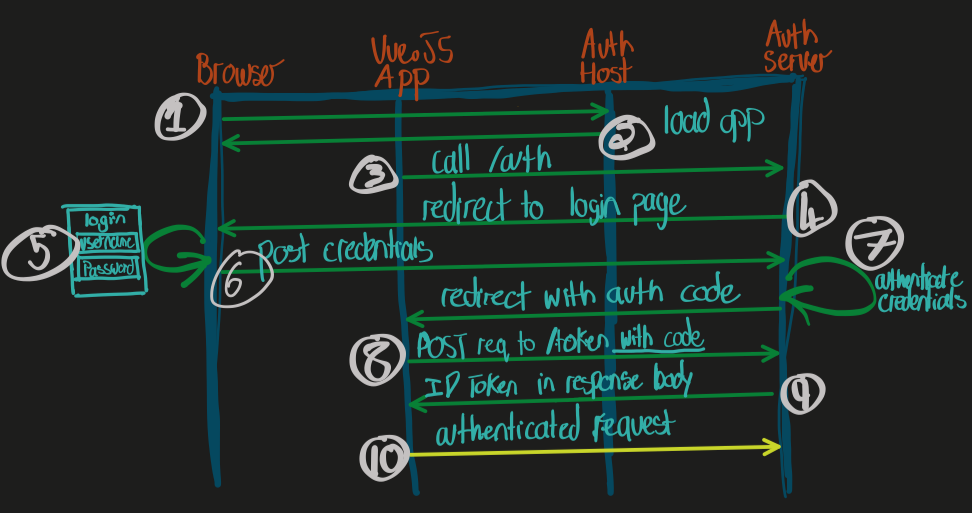 Browser
VueoJS
APP
Auth
Host
Auth
Server
1
2
load app
3
call /auth
4
redirect to login page
5
login
username
Password
6
Post credentials
7
authenticate
credentials
redirect with auth code
8
POST req to /token with code
9
ID Token in response body
10
authenticated request